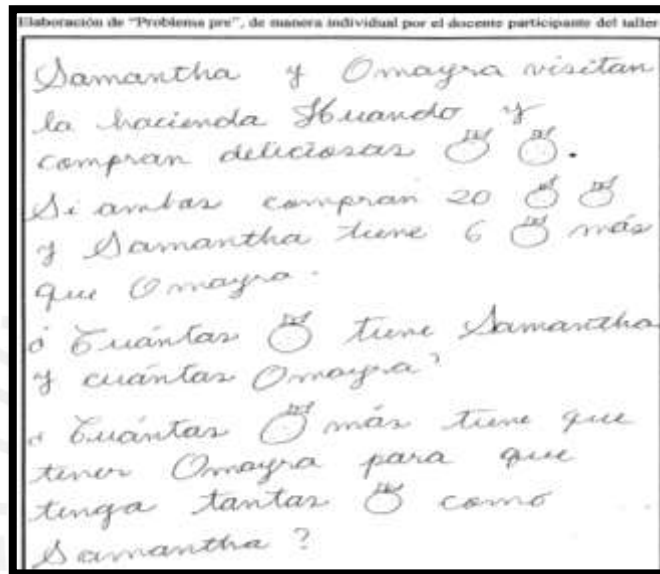 Elaboración de “Problema pre”, de manera individual por el docente participante del taller
Samantha y Omayra visitan
la hacienda Huando y
compran deliciosas .
Si ambas compran 20
y Samantha tiene 6 más
que Omayra.
¿Cuántas tiene Samantha
y cuántas Omayra?
¿Cuántas más tiene que
tener Omayra para que
tenga tantas como
Samantha?